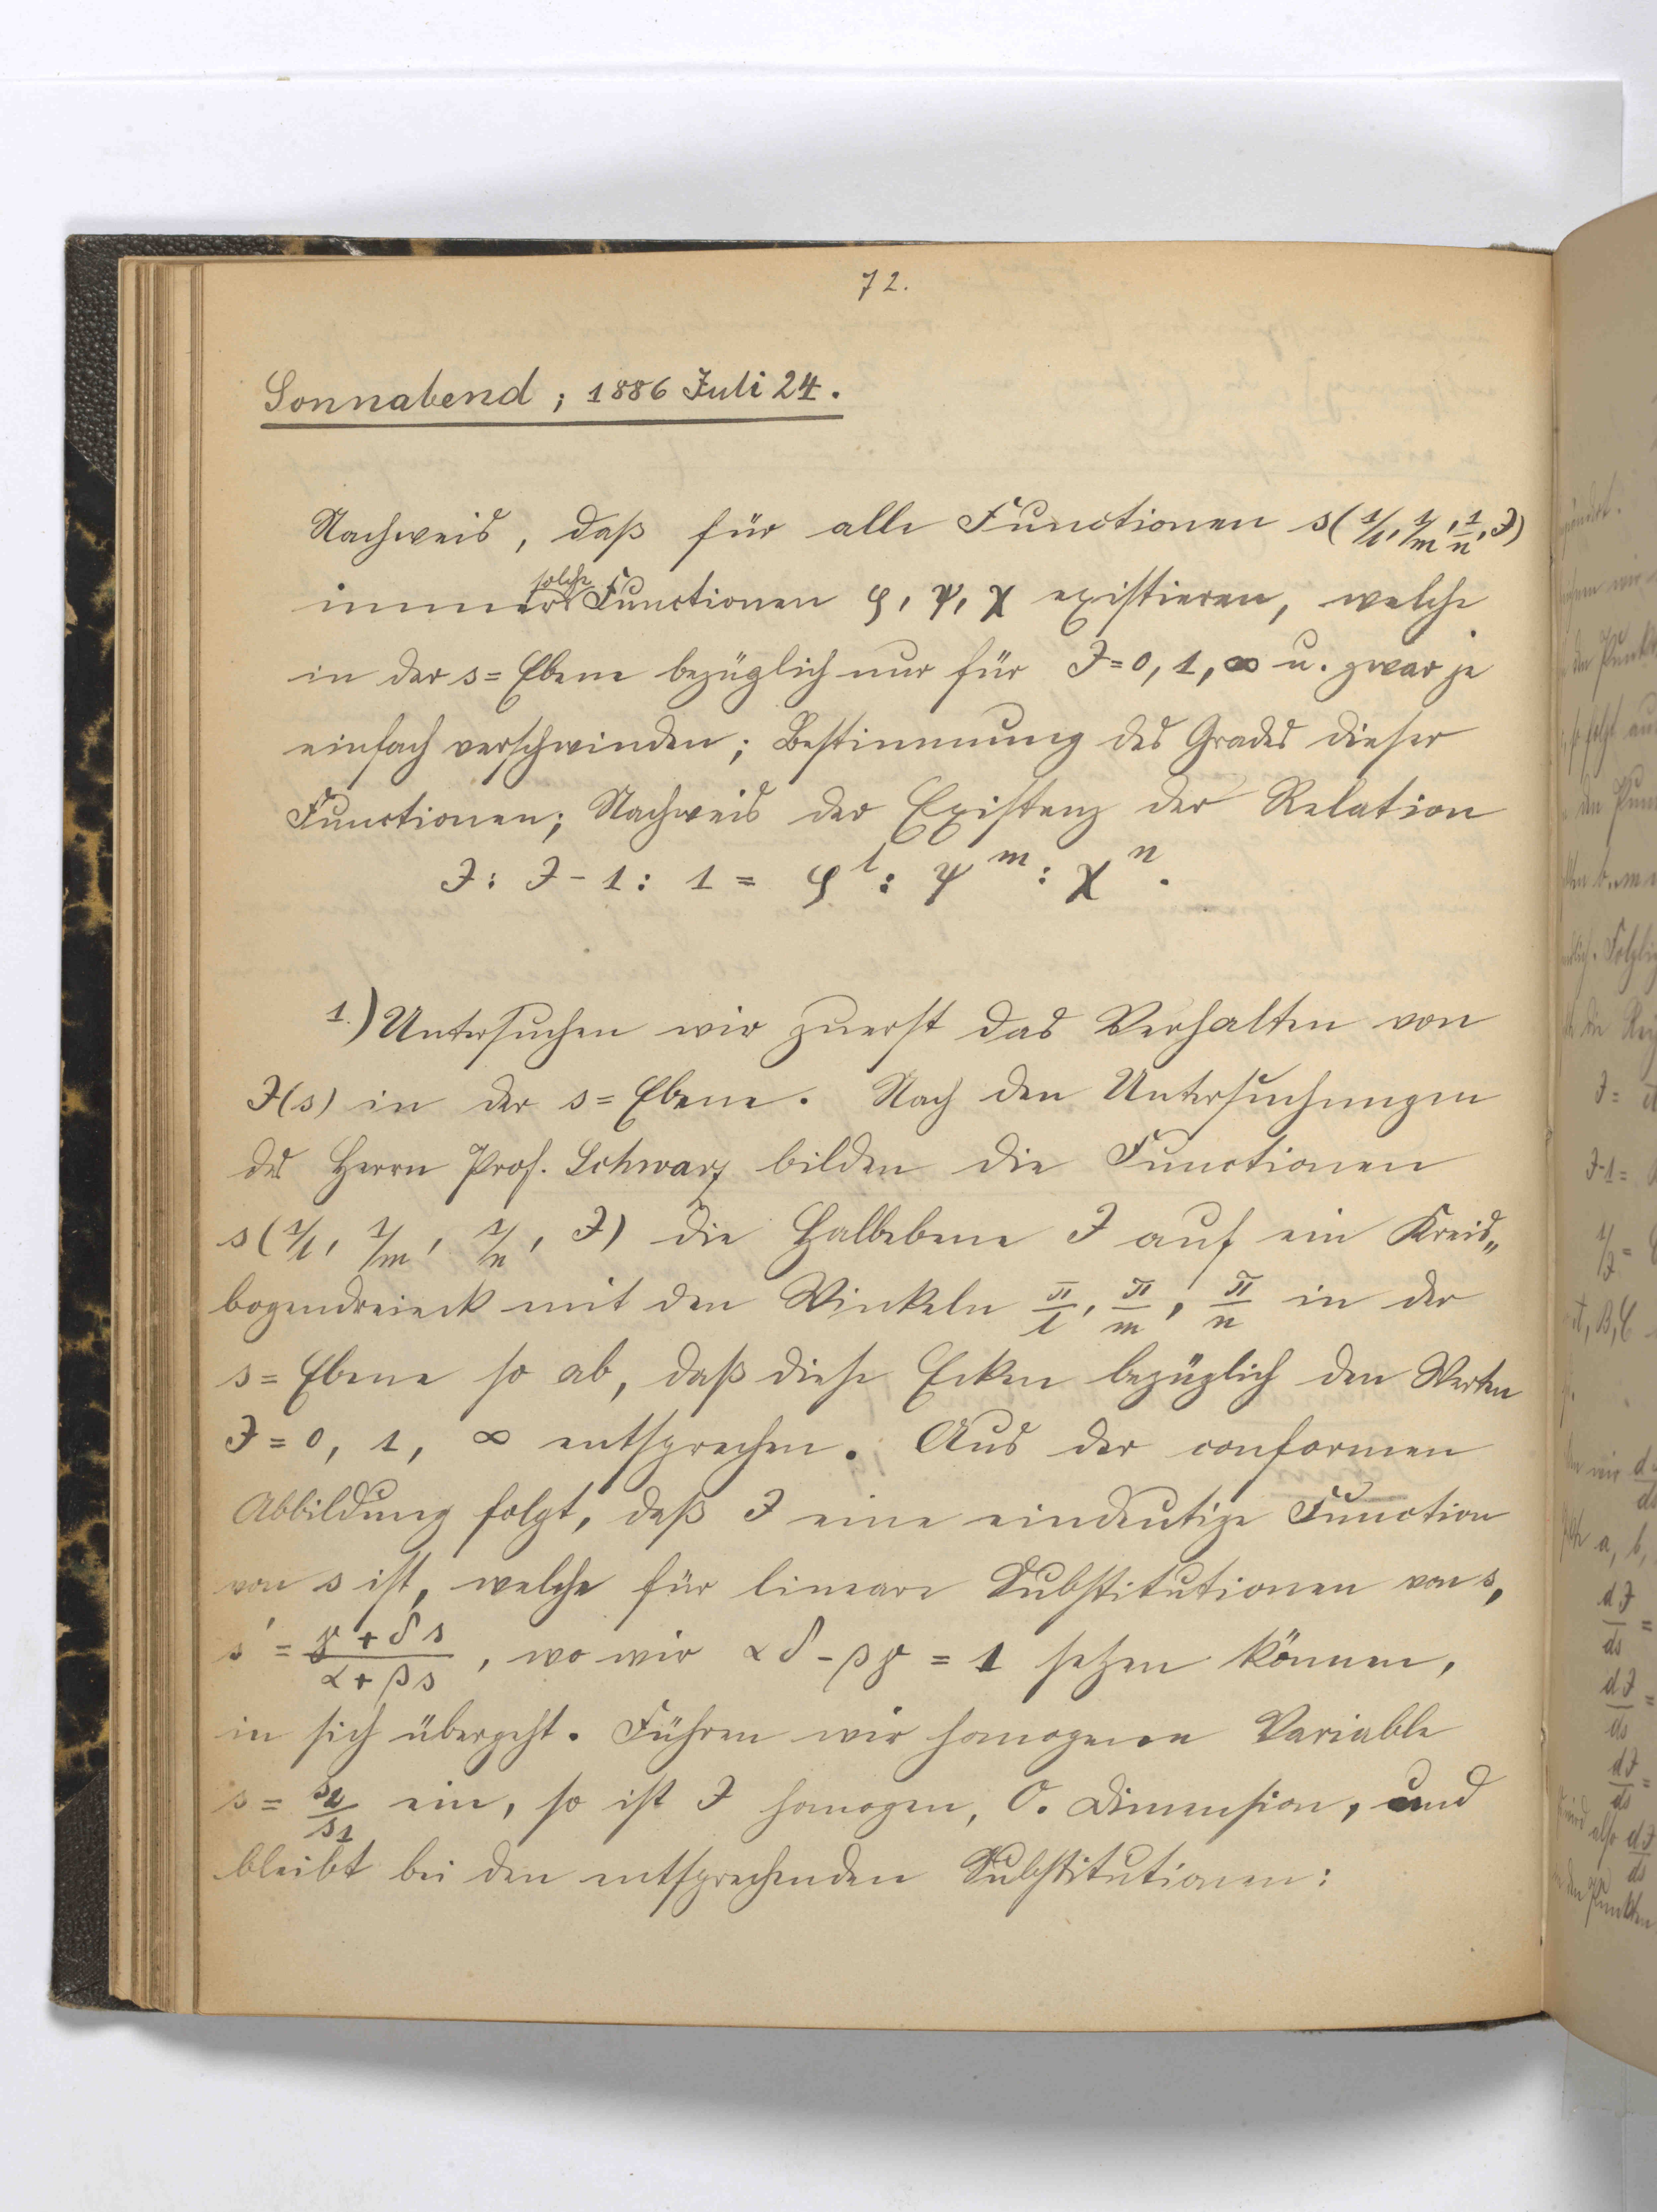 72.
Sonnabend; 1886 Juli 24.
Nachweis, daß für alle Functionen s(1/l, 1/m, 1/n, J)
immer solche Functionen φ, ψ, χ existieren, welche
in der s=Ebene bezüglich nur für J=0, 1, ∞ u. zwar je
einfach verschwinden; Bestimmung des Grades dieser
Functionen; Nachweis der Existenz der Relation
J : J-1 : 1 = φ^l : ψ^m : χ^n.
1.) Untersuchen wir zuerst das Verhalten von
J(s) in der s=Ebene. Nach den Untersuchungen
des Herrn Prof. Schwarz bilden die Functionen
s(1/l, 1/m, 1/n, J) die Halbebene J auf ein Kreis„
bogendreieck mit den Winkeln π/l, π/m, π/n in der
s=Ebene so ab, daß diese Ecken bezüglich den Werten
J=0, 1, ∞ entsprechen. Aus der conformen
Abbildung folgt, daß J eine eindeutige Function
von s ist, welche für lineare Substitutionen von s,
s' = (γ+δs)/(α+βs), wo wir αδ-βγ=1 setzen können,
in sich übergeht. Führen wir homogene Variable
s = s2/s1 ein, so ist J homogen, 0. Dimension, und
bleibt bei den entsprechenden Substitutionen: